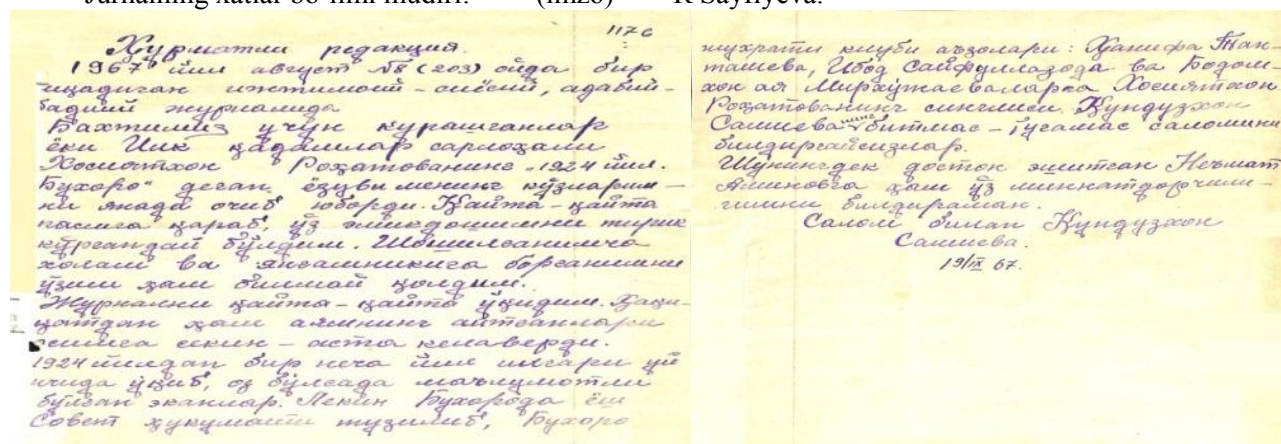 Jurnalning xatlar bo'limi mudiri: (imzo) R Sayfiyeva.
117 с
Хурматли редакция.
1967 йил август №8 (203) ойда бир
чиқадиган ижтимоий-сиёсий, адабий-
бадиий журналида
Бахтимиз учун курашганлар
ёки Илк қадамлар сарлоҳали
Хосиятхон Роҳатованинг „1924 йил.
Бухоро" деган ёзуви менинг кўзларим-
ни янада очиб юборди. Қайта-қайта
расмига қараб, ўз эгачимни тирик
кўргандай бўлдим. Шошилганимча
холам ва янгамникига борганимни
ўзим ҳам билмай қолдим.
Журнални қайта-қайта ўқидим. Ҳақи-
қатдан ҳам аямнинг айтганлари
эсимга секин-аста келаверди.
1924 йилдан бир неча йил илгари уй
ичида ўқиб, оз бўлсада маълумотли
бўлган эканлар. Лекин Бухорода ёш
Совет ҳукумати тузилиб, Бухоро
шухрати клуби аъзолари: Ҳанифа Тан-
ташева, Ибод Сайфуллазода ва Бодом-
хон ая Мирхўжаеваларга Хосиятхон
Роҳатованинг синглиси Қундузхон
Салиеванинг битмас-туганмас саломини
билдирсангизлар.
Шунингдек достон эшитган Неъмат
Аминовга ҳам ўз миннатдорчили-
гимни билдираман.
Салом билан Қундузхон
Салиева.
19/IX 67.